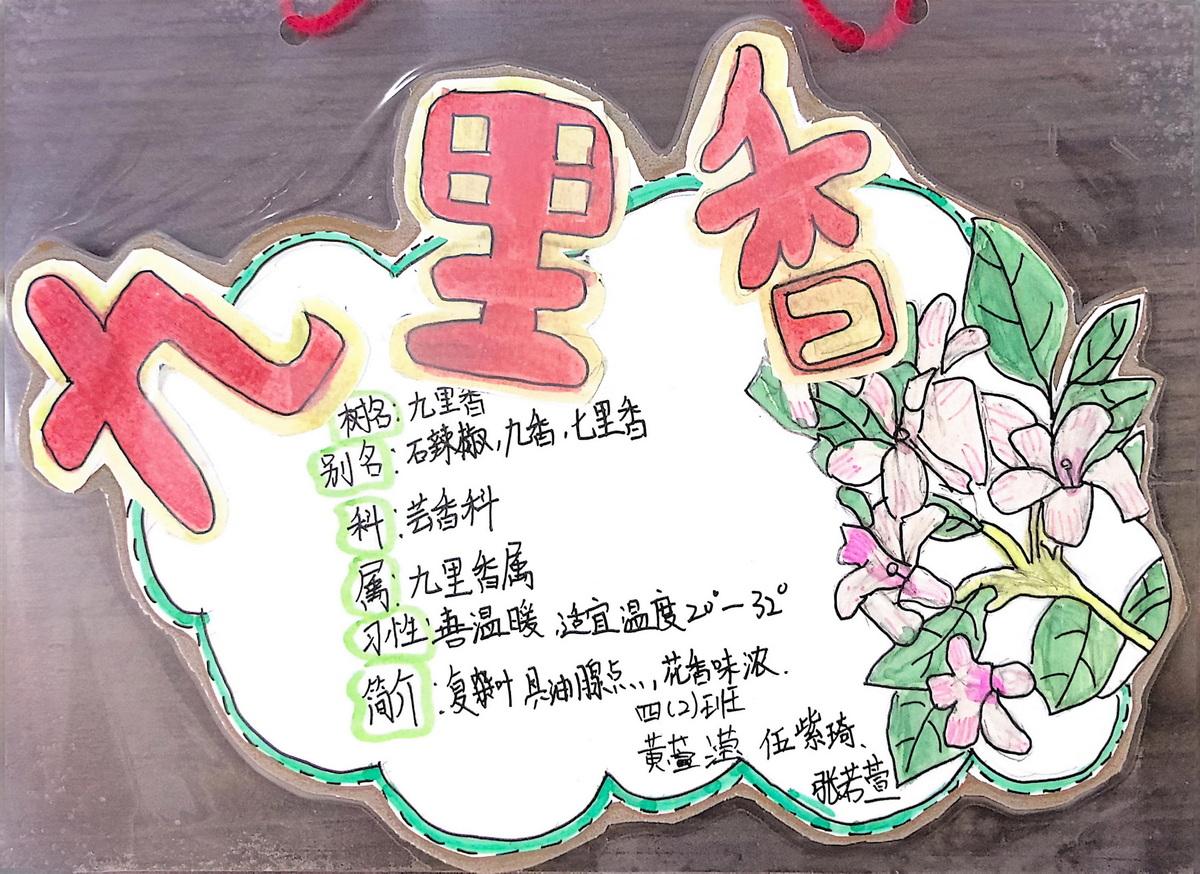 九里香
树名：九里香
别名：石辣椒，九香，七里香
科：芸香科
属：九里香属
习性：喜温暖，适宜温度20°—32°
简介：复叶具油腺点，花香味浓.
四(2)班
黄萱滢 伍紫琦、
张若萱